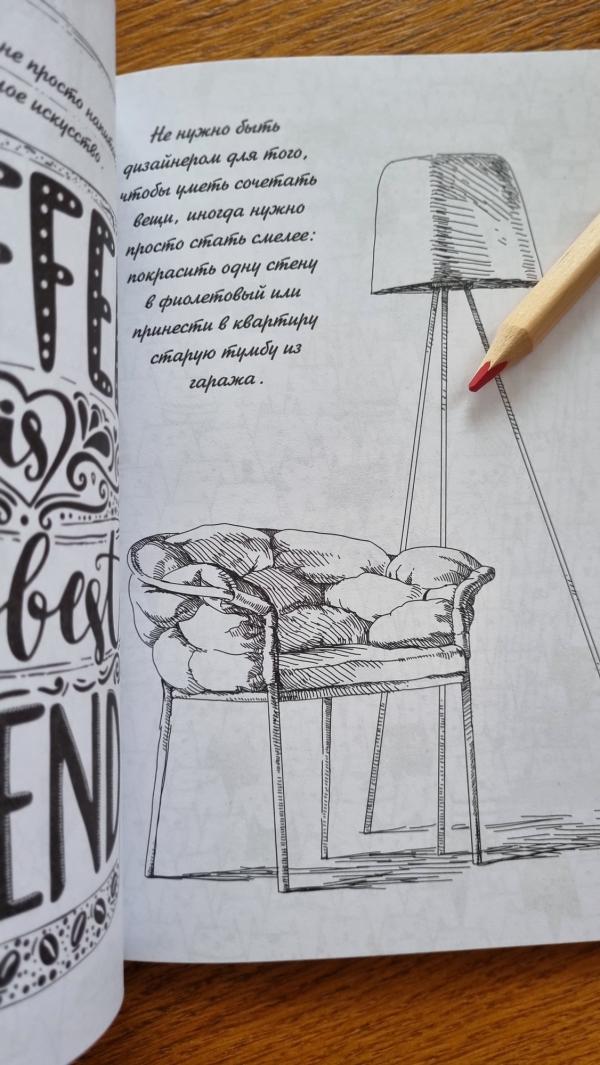 не просто напит
ое искусство.
FFE
is
best
END
Не нужно быть
дизайнером для того,
чтобы уметь сочетать
вещи, иногда нужно
просто стать смелее:
покрасить одну стену
в фиолетовый или
принести в квартиру
старую тумбу из
гаража.